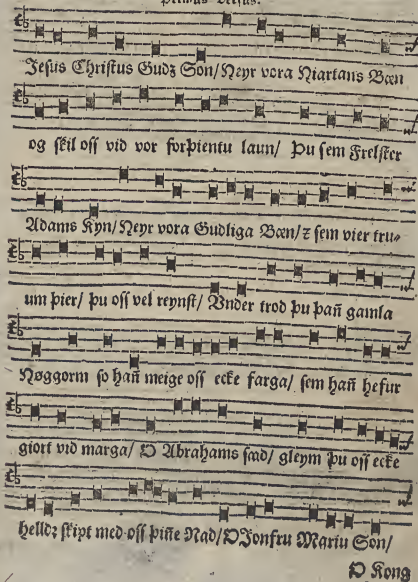 Primus Versus.
Jesus Christus Gudz Son/ Heyr vora Hiartans Bœn
og skil oss vid vor forþientu laun/ þu sem Frelster
Adams Kyn/ Heyr vora Gudliga Bœn/ z sem vier tru⸗
um þier/ þu oss vel reynst/ Vnder trod þu þañ gamla
Høggorm so hañ meige oss ecke farga/ sem hañ hefur
giort vid marga/ O Abrahams sæd/ gleym þu oss ecke
helldz skipt med oss þiñe Nad/ O Jonfru Mariu Son/
O Kong